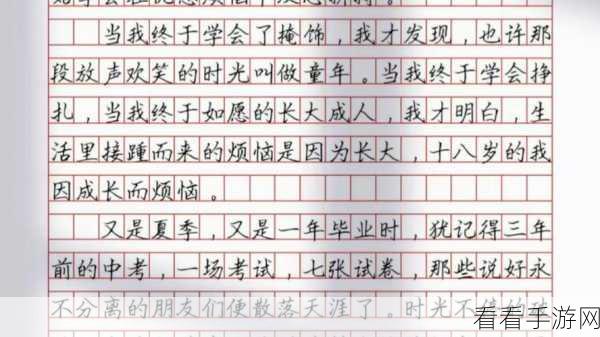 当我终于学会了掩饰，我才发现，也许那
段放声欢笑的时光叫做童年。当我终于学会挣
扎，当我终于如愿的长大成人，我才明白，生
活里接踵而来的烦恼是因为长大，十八岁的我
因成长而烦恼。
又是夏季，又是一年毕业时，犹记得三年
前的中考，一场考试，七张试卷，那些说好永
不分离的朋友们便散落天涯了。时光不
看看手游网